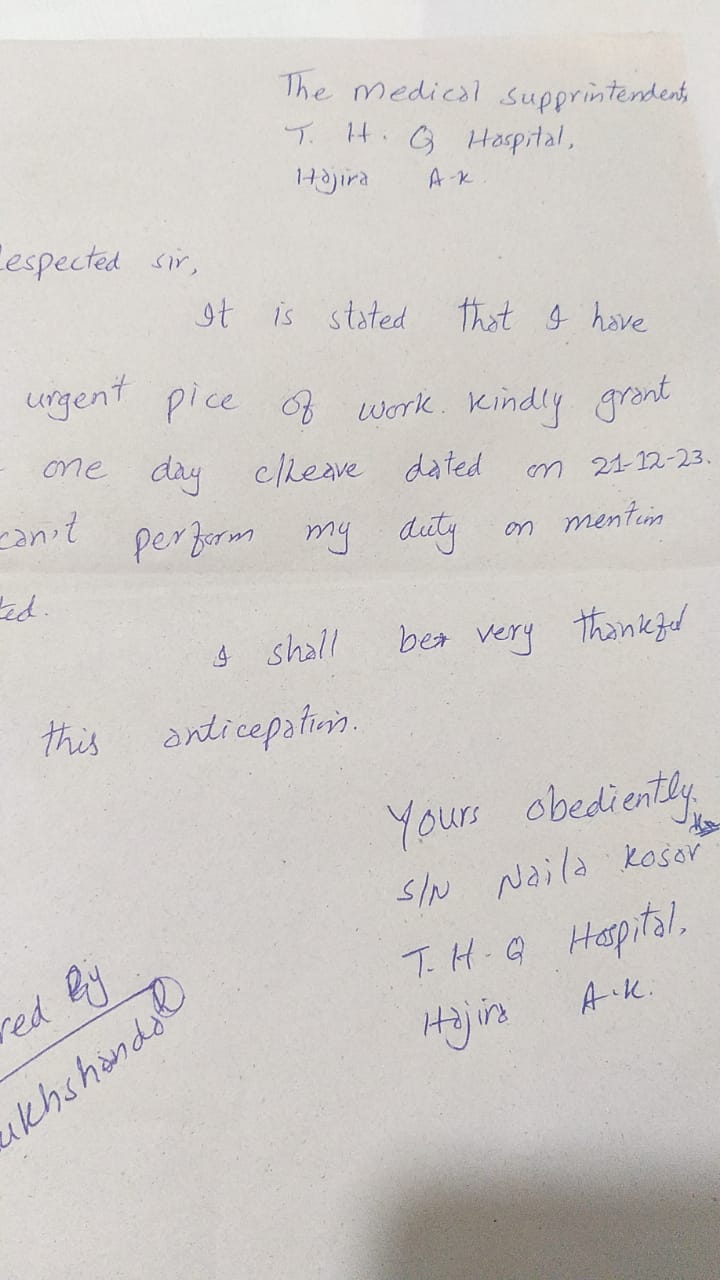 The medical supprintendent,
T. H. Q Hospital,
Hajira A-K.
Respected sir,
It is stated that I have
urgent pice of work. kindly grant
one day c/Leave dated on 21-12-23.
can't perform my duty on mention
ted.
I shall be very thankful
this anticepation.
Yours obediently,
S/N Naila Kosar
T. H. Q Hospital,
Hajira A.K.
red By
ukhshanda